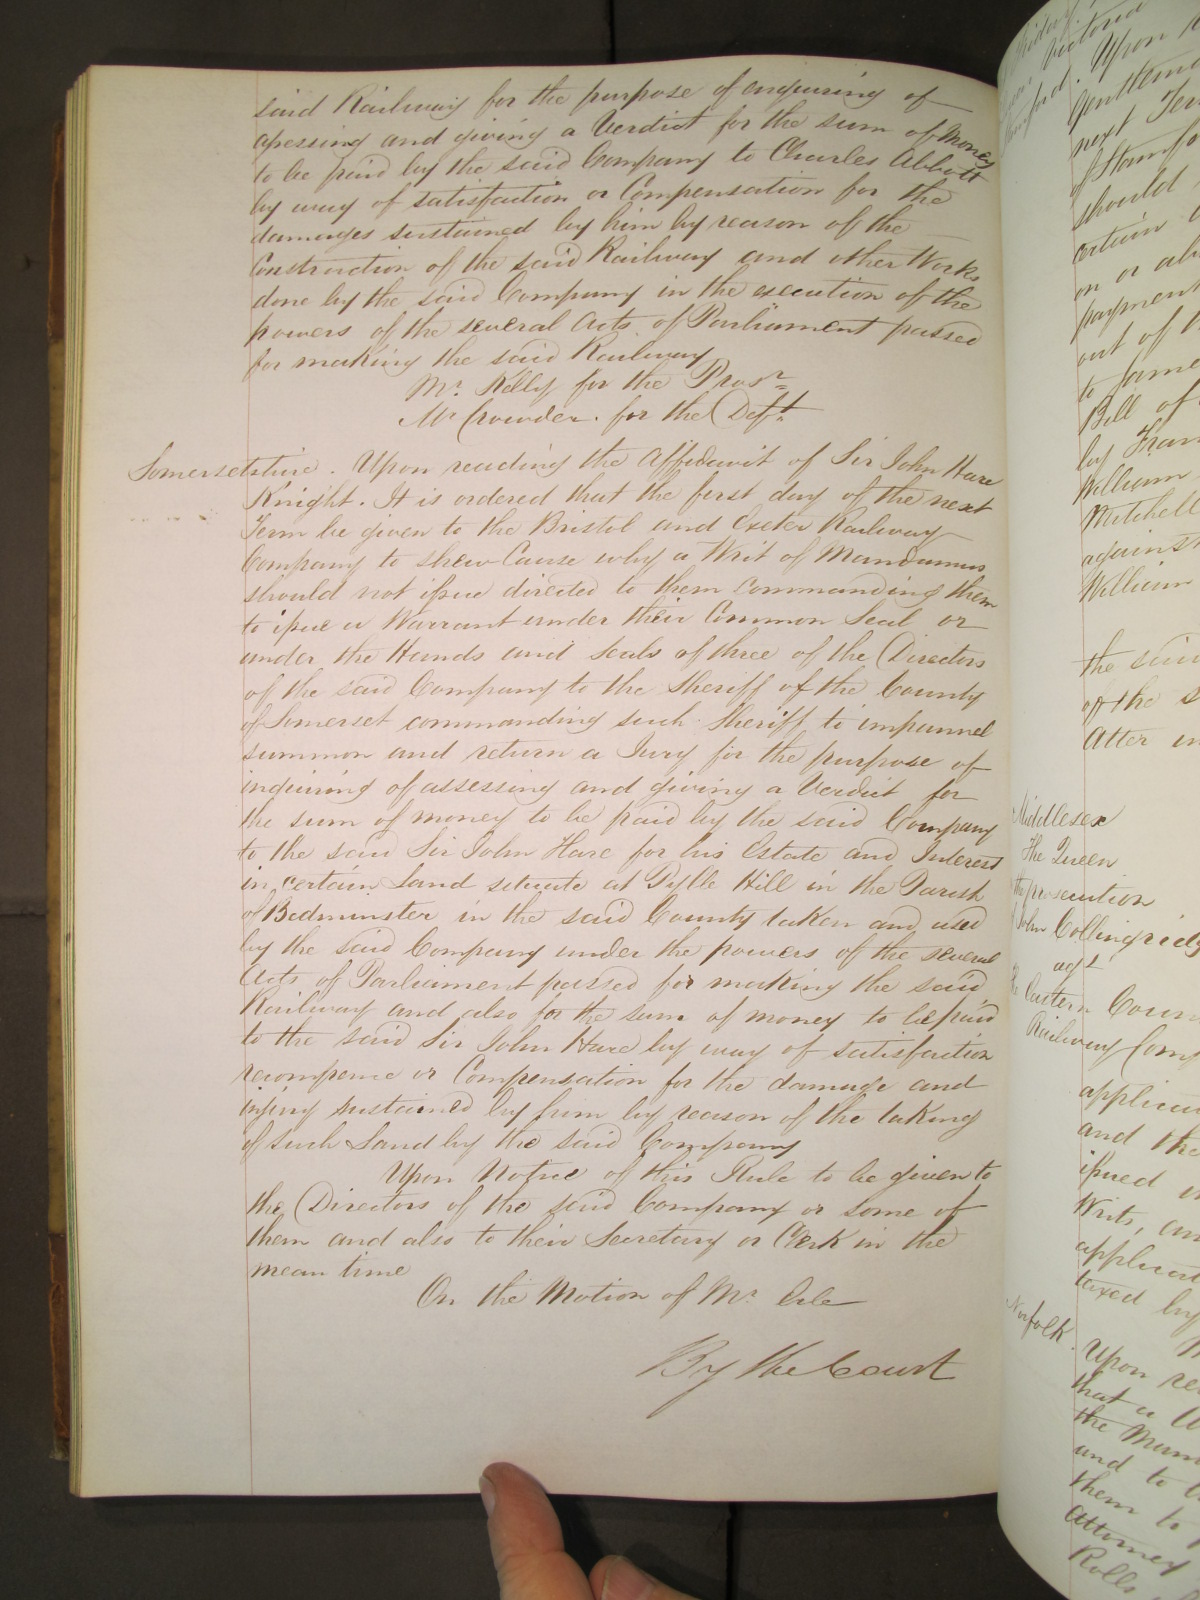 said Railway for the purpose of enquiring of
assessing and giving a Verdict for the sum of money
to be paid by the said Company to Charles Abbott
by way of satisfaction or Compensation for the
damages sustained by him by reason of the
Construction of the said Railway and other Works
done by the said Company in the execution of the
powers of the several Acts of Parliament passed
for making the said Railway
Mr. Kelly for the Prosr.
Mr Crowder. for the Deft.
Somersetshire. Upon reading the Affidavit of Sir John Hare
Knight. It is ordered that the first day of the next
Term be given to the Bristol and Exeter Railway
Company to shew Cause why a Writ of Mandamus
should not issue directed to them Commanding them
to issue a Warrant under their Common Seal or
under the Hands and Seals of three of the Directors
of the said Company to the Sheriff of the County
of Somerset commanding such Sheriff to impannel
summon and return a Jury for the purpose of
inquiring of assessing and giving a Verdict for
the sum of money to be paid by the said Company
to the said Sir John Hare for his Estate and Interest
in certain Land situate at Pylle Hill in the Parish
of Bedminster in the said County taken and used
by the said Company under the powers of the several
Acts of Parliament passed for making the said
Railway and also for the sum of money to be paid
to the said Sir John Hare by way of satisfaction
recompence or Compensation for the damage and
injury sustained by him by reason of the taking
of such Land by the said Company
Upon Notice of this Rule to be given to
the Directors of the said Company or some of
them and also to their Secretary or Clerk in the
mean time
On the Motion of Mr. Erle
By the Court
Upon
next
should
certain
or
payment
out of
to James
Bill of
by
William
Mitchell
against
William
the said
of the
After
Middlesex
The Queen
the prosecution
John Collingridge
agt
the Eastern Coun
Railway Comp
applica
and the
issued
Writs, an
applicat
taxed by
Norfolk.
Upon re
that a
the
and to
them to
Attorney
Rolls